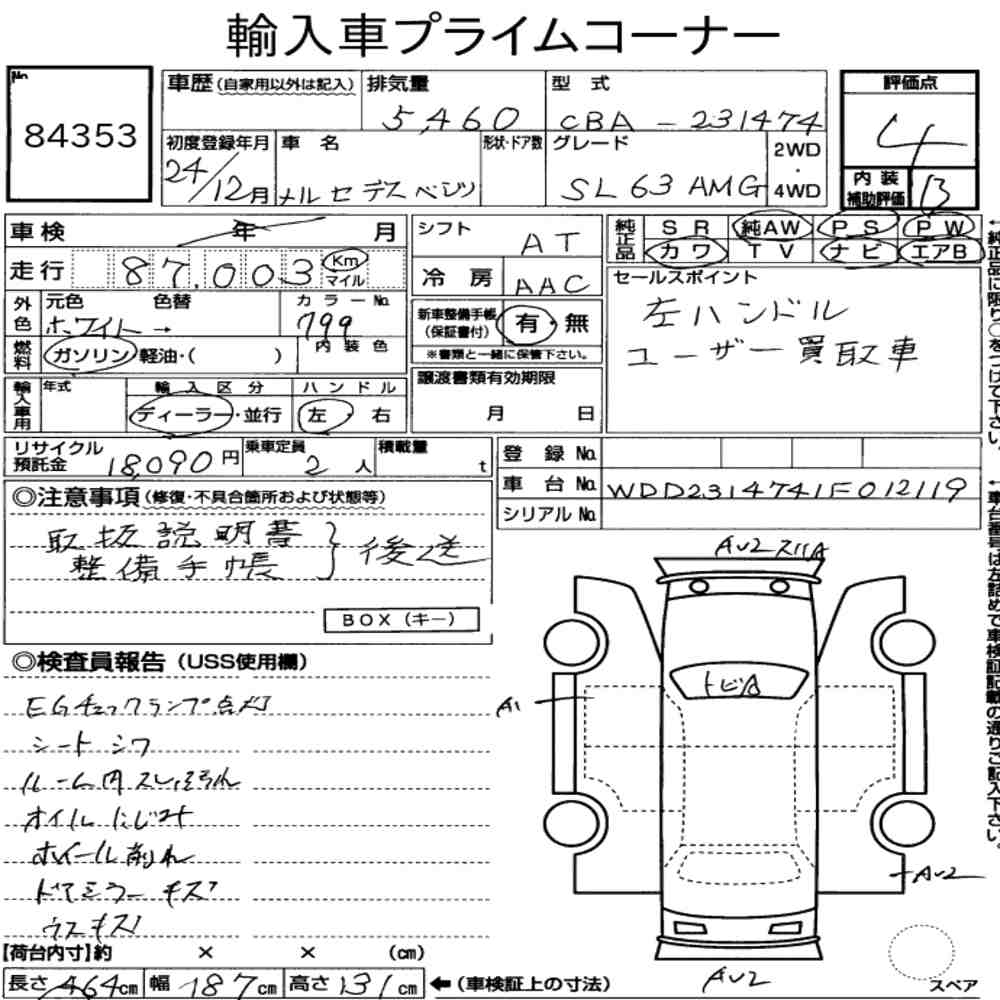 輸入車プライムコーナー
No.
84353
車歴 (自家用以外は記入) 排気量 型式
5,460 CBA - 231474
評価点
4
初度登録年月 車名 形状・ドア数 グレード 2WD
・
4WD
24/12月 メルセデスベンツ SL63 AMG
内装
補助評価 B
車検 年 月
走行 87,003 Km
マイル
シフト AT
冷房 AAC
純正品 SR 純AW PS PW
カワ TV ナビ エアB
外色 元色 色替 カラーNo.
ホワイト → 799
内装色
燃料 ガソリン・軽油・( )
新車整備手帳
(保証書付) 有・無
※書類と一緒に保管下さい。
セールスポイント
左ハンドル
ユーザー買取車
輸入車用 年式 輸入区分 ハンドル
ディーラー・並行 左・右
譲渡書類有効期限
月 日
リサイクル
預託金 18,090円 乗車定員 2人 積載量 t
登録No.
車台No. WDD2314741F012119
シリアルNo.
←純正品に限り○をつけて下さい。
←車台番号は左詰めで車検証記載の通りご記入下さい。
◎注意事項 (修復・不具合箇所および状態等)
取扱説明書
整備手帳 } 後送
BOX(キー)
◎検査員報告 (USS使用欄)
EGチェックランプ点灯
シートシワ
ルーム内スレ汚れ
オイルにじみ
ホイール削れ
ドアミラーキズ
ウスキズ
AU2 スリA
トビA
A1
AU2
AU2
スペア
【荷台内寸】約 × × (cm)
長さ 464cm 幅 187cm 高さ 131cm ←(車検証上の寸法)